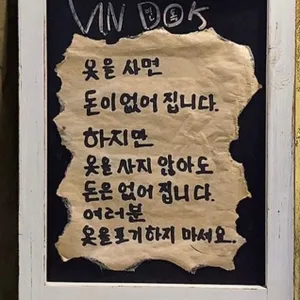 VIN DOK
빈독
옷을 사면
돈이 없어 집니다.
하지만
옷을 사지 않아도
돈은 없어 집니다.
여러분
옷을 포기하지 마세요.